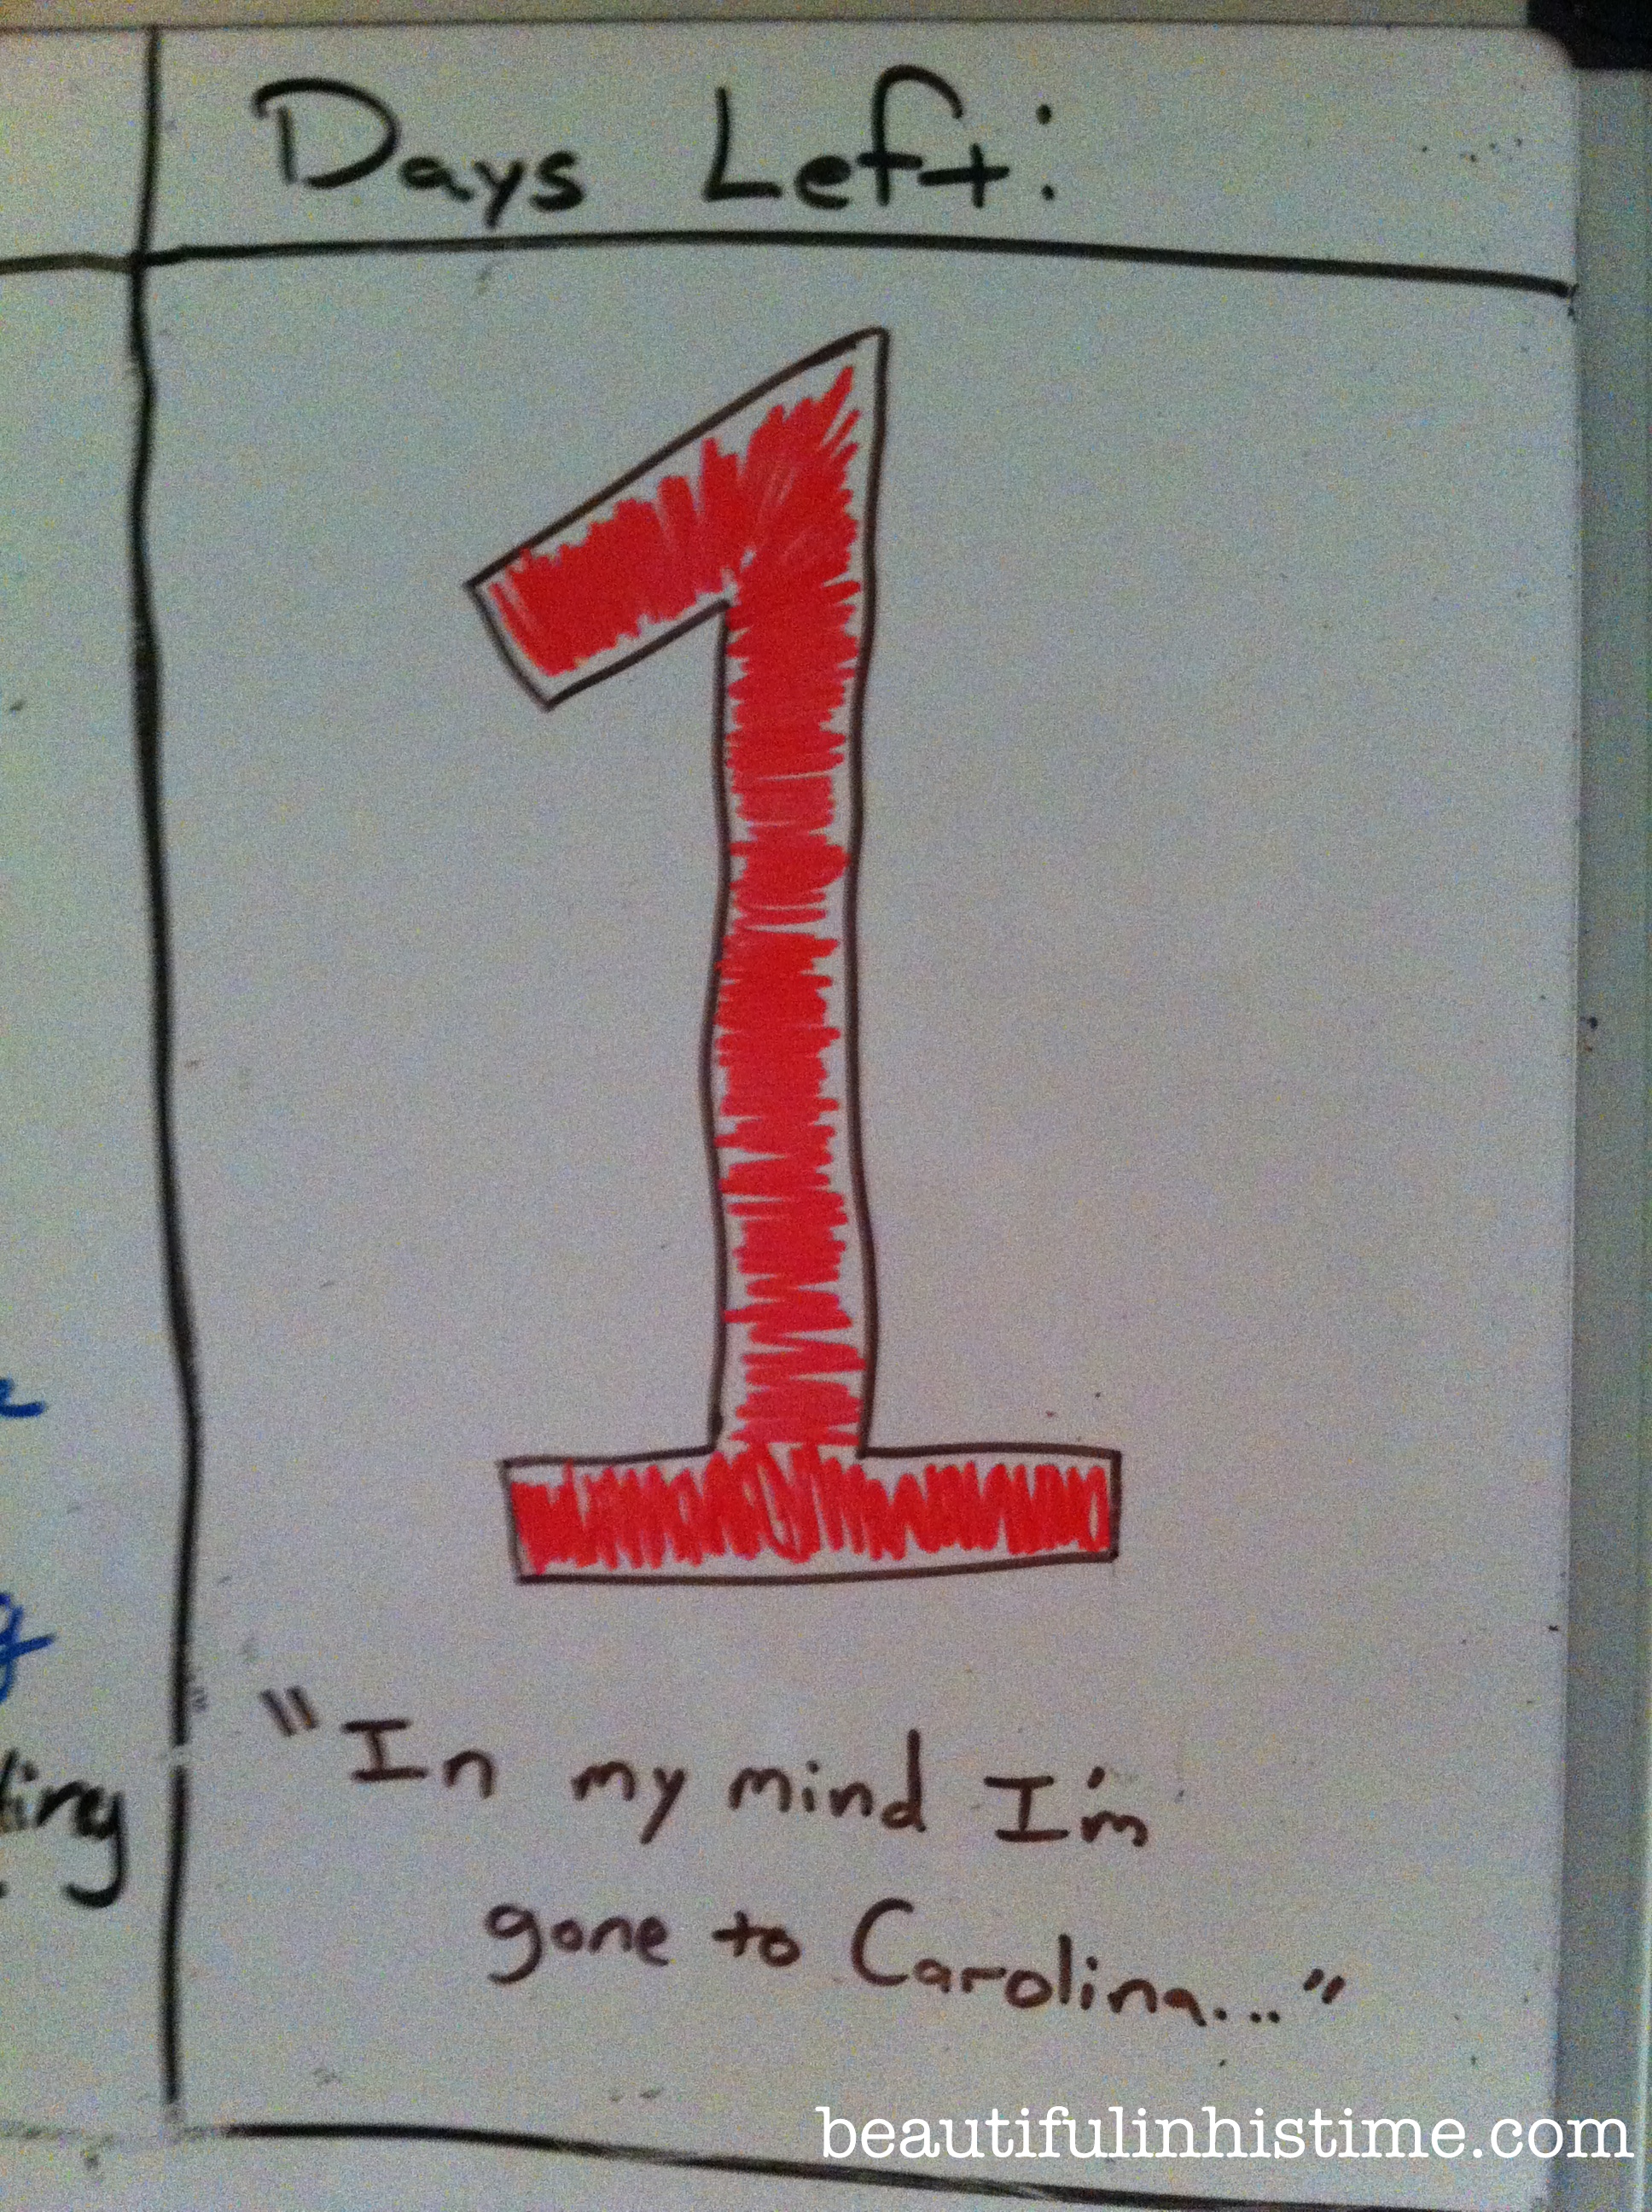 Days Left:
1
"In my mind I'm
gone to Carolina..."
beautifulinhistime.com